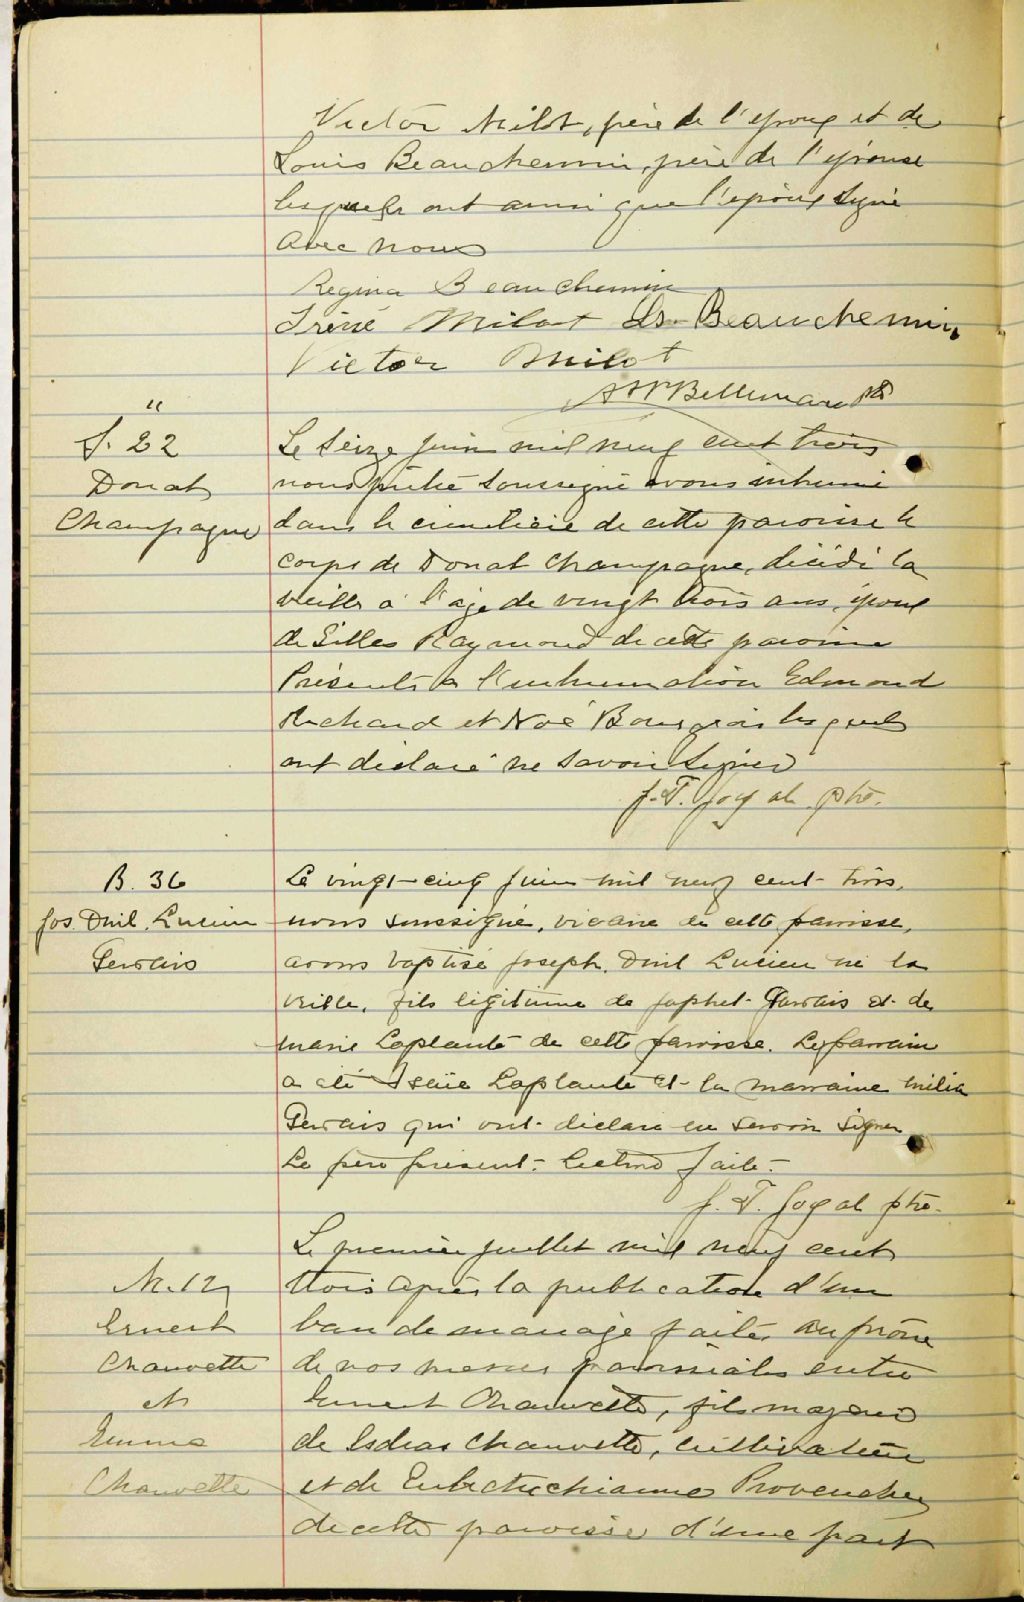 Victor Milot, père de l'époux et de
Louis Beauchemin, père de l'épouse
lesquels ont ainsi que l'époux signé
avec nous
Regina Beauchemin
Iréné Milot Ls Beauchemin
Victor Milot
Bellemare Ptre
"
S. 22
Donat
Champagne
Le seize juin mil neuf cent trois
nous prêtre soussigné avons inhumé
dans le cimetière de cette paroisse le
corps de Donat Champagne, décédé la
veille à l'age de vingt trois ans, époux
de Raymond de cette paroisse
Présents à l'inhumation Edmond
Richard et Noé Bourgeois lesquels
ont déclaré ne savoir signer
J. T. Joyal ptre.
B. 36
Jos. Lucien
Gervais
Le vingt-cinq juin mil neuf cent trois,
nous soussigné, vicaire de cette paroisse,
avons baptisé Joseph. Lucien né la
veille, fils légitime de Japhet Gervais et de
marie Laplante de cette paroisse. Le parrain
a été Laplante et la marraine
Gervais qui ont déclaré ne savoir signer
Le père présent. Lecture faite.
J. T. Joyal ptre.
M. 12
Ernest
Chauvette
et
Emma
Chauvette
Le premier juillet mil neuf cent
trois après la publication d'un
ban de mariage faite au prône
de nos messes paroissiales entre
Ernest Chauvette, fils majeur
de Esdras Chauvette, cultivateur
et de Provencher
de cette paroisse d'une part